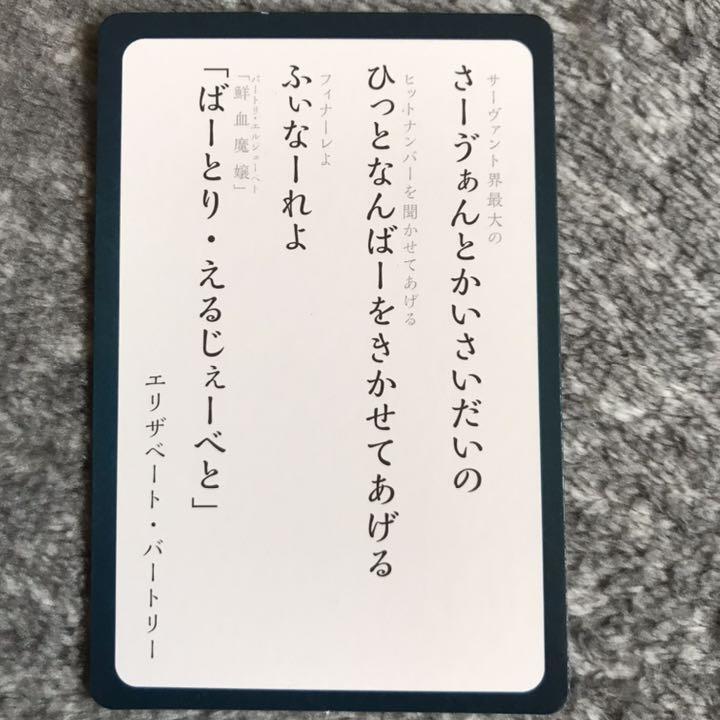 サーヴァント界最大の
さーゔぁんとかいさいだいの
ヒットナンバーを聞かせてあげる
ひっとなんばーをきかせてあげる
フィナーレよ
ふぃなーれよ
バートリ・エルジェーベト
「鮮血魔嬢」
「ばーとり・えるじぇーべと」
エリザベート・バートリー